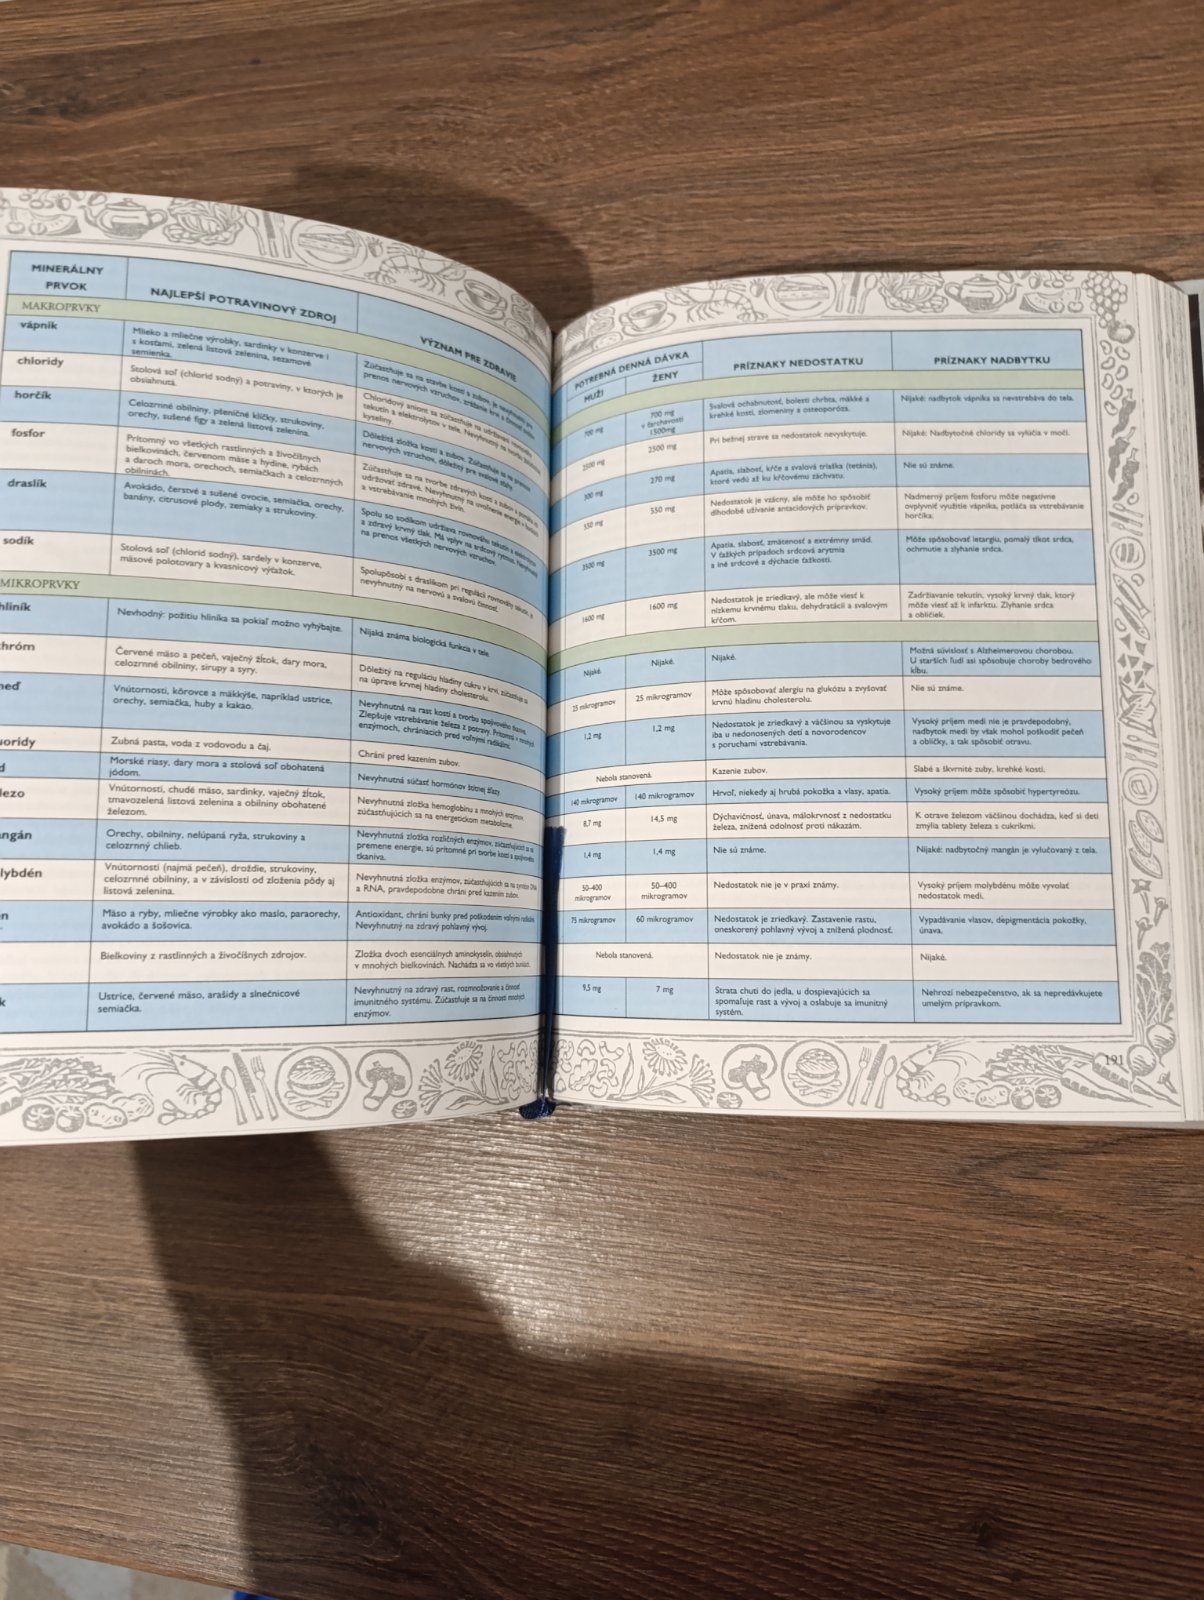 MINERÁLNY
PRVOK
NAJLEPŠÍ POTRAVINOVÝ ZDROJ
VÝZNAM PRE ZDRAVIE
MAKROPRVKY
vápnik
Mlieko a mliečne výrobky, sardinky v konzerve i
s kosťami, zelená listová zelenina, sezamové
semienka.
Zúčastňuje sa na stavbe kostí a zubov, je nevyhnutný pre
prenos nervových vzruchov, zrážanie krvi a činnosť svalov.
chloridy
Stolová soľ (chlorid sodný) a potraviny, v ktorých je
obsiahnutá.
Chloridový aniont sa zúčastňuje na udržovaní rovnováhy
tekutín a elektrolytov v tele. Nevyhnutný na tvorbu žalúdočnej
kyseliny.
horčík
Celozrnné obilniny, pšeničné klíčky, strukoviny,
orechy, sušené figy a zelená listová zelenina.
Dôležitá zložka kostí a zubov. Zúčastňuje sa na prenose
nervových vzruchov, dôležitý pre svalové sťahy.
fosfor
Prítomný vo všetkých rastlinných a živočíšnych
bielkovinách, červenom mäse a hydine, rybách
a daroch mora, orechoch, semiačkach a celozrnných
obilninách.
Zúčastňuje sa na tvorbe zdravých kostí a zubov a pomáha ich
udržovať zdravé. Nevyhnutný na uvoľnenie energie v bunkách
a vstrebávanie mnohých živín.
draslík
Avokádo, čerstvé a sušené ovocie, semiačka, orechy,
banány, citrusové plody, zemiaky a strukoviny.
Spolu so sodíkom udržiava rovnováhu tekutín a elektrolytov
a zdravý krvný tlak. Má vplyv na srdcový rytmus. Nevyhnutný
na prenos všetkých nervových vzruchov.
sodík
Stolová soľ (chlorid sodný), sardely v konzerve,
mäsové polotovary a kvasnicový výťažok.
Spolupôsobí s draslíkom pri regulácii rovnováhy tekutín, je
nevyhnutný na nervovú a svalovú činnosť.
MIKROPRVKY
hliník
Nevhodný: požitiu hliníka sa pokiaľ možno vyhýbajte.
Nijaká známa biologická funkcia v tele.
hróm
Červené mäso a pečeň, vaječný žĺtok, dary mora,
celozrnné obilniny, sirupy a syry.
Dôležitý na reguláciu hladiny cukru v krvi, zúčastňuje sa
na úprave krvnej hladiny cholesterolu.
neď
Vnútornosti, kôrovce a mäkkýše, napríklad ustrice,
orechy, semiačka, huby a kakao.
Nevyhnutný na rast kostí a tvorbu spojivového tkaniva.
Zlepšuje vstrebávanie železa z potravy. Prítomná v mnohých
enzýmoch, chrániacich pred voľnými radikálmi.
uoridy
Zubná pasta, voda z vodovodu a čaj.
Chráni pred kazením zubov.
d
Morské riasy, dary mora a stolová soľ obohatená
jódom.
Nevyhnutná súčasť hormónov štítnej žľazy.
lezo
Vnútornosti, chudé mäso, sardinky, vaječný žĺtok,
tmavozelená listová zelenina a obilniny obohatené
železom.
Nevyhnutná zložka hemoglobínu a mnohých enzýmov,
zúčastňujúcich sa na energetickom metabolizme.
ngán
Orechy, obilniny, nelúpaná ryža, strukoviny a
celozrnný chlieb.
Nevyhnutná zložka rozličných enzýmov, zúčastňujúcich sa na
premene energie, sú prítomné pri tvorbe kostí a spojivového
tkaniva.
lybdén
Vnútornosti (najmä pečeň), droždie, strukoviny,
celozrnné obilniny, a v závislosti od zloženia pôdy aj
listová zelenina.
Nevyhnutná zložka enzýmov, zúčastňujúcich sa na syntéze DNA
a RNA, pravdepodobne chráni pred kazením zubov.
n
Mäso a ryby, mliečne výrobky ako maslo, paraorechy,
avokádo a šošovica.
Antioxidant, chráni bunky pred poškodením voľnými radikálmi.
Nevyhnutný na zdravý pohlavný vývoj.
Bielkoviny z rastlinných a živočíšnych zdrojov.
Zložka dvoch esenciálnych aminokyselín, obsiahnutých
v mnohých bielkovinách. Nachádza sa vo všetkých bunkách.
k
Ustrice, červené mäso, arašidy a slnečnicové
semiačka.
Nevyhnutný na zdravý rast, rozmnožovanie a činnosť
imunitného systému. Zúčastňuje sa na činnosti mnohých
enzýmov.
POTREBNÁ DENNÁ DÁVKA
MUŽI
ŽENY
PRÍZNAKY NEDOSTATKU
PRÍZNAKY NADBYTKU
700 mg
700 mg
v ťarchavosti
1500mg
Svalová ochabnutosť, bolesti chrbta, mäkké a
krehké kosti, zlomeniny a osteoporóza.
Nijaké: nadbytok vápnika sa nevstrebáva do tela.
2500 mg
2500 mg
Pri bežnej strave sa nedostatok nevyskytuje.
Nijaké: Nadbytočné chloridy sa vylúčia v moči.
300 mg
270 mg
Apatia, slabosť, kŕče a svalová triaška (tetánia),
ktoré vedú až ku kŕčovému záchvatu.
Nie sú známe.
550 mg
550 mg
Nedostatok je vzácny, ale môže ho spôsobiť
dlhodobé užívanie antacidových prípravkov.
Nadmerný príjem fosforu môže negatívne
ovplyvniť využitie vápnika, potláča sa vstrebávanie
horčíka.
3500 mg
3500 mg
Apatia, slabosť, zmätenosť a extrémny smäd.
V ťažkých prípadoch srdcová arytmia
a iné srdcové a dýchacie ťažkosti.
Môže spôsobovať letargiu, pomalý tlkot srdca,
ochrmutie a zlyhanie srdca.
1600 mg
1600 mg
Nedostatok je zriedkavý, ale môže viesť k
nízkemu krvnému tlaku, dehydratácii a svalovým
kŕčom.
Zadržiavanie tekutín, vysoký krvný tlak, ktorý
môže viesť až k infarktu. Zlyhanie srdca
a obličiek.
Nijaké.
Nijaké.
Nijaké.
Možná súvislosť s Alzheimerovou chorobou.
U starších ľudí asi spôsobuje choroby bedrového
kĺbu.
25 mikrogramov
25 mikrogramov
Môže spôsobovať alergiu na glukózu a zvyšovať
krvnú hladinu cholesterolu.
Nie sú známe.
1,2 mg
1,2 mg
Nedostatok je zriedkavý a väčšinou sa vyskytuje
iba u nedonosených detí a novorodencov
s poruchami vstrebávania.
Vysoký príjem medi nie je pravdepodobný,
nadbytok medi by však mohol poškodiť pečeň
a obličky, a tak spôsobiť otravu.
Nebola stanovená.
Kazenie zubov.
Slabé a škvrnité zuby, krehké kosti.
140 mikrogramov
140 mikrogramov
Hrvoľ, niekedy aj hrubá pokožka a vlasy, apatia.
Vysoký príjem môže spôsobiť hypertyreózu.
8,7 mg
14,5 mg
Dýchavičnosť, únava, málokrvnosť z nedostatku
železa, znížená odolnosť proti nákazám.
K otrave železom väčšinou dochádza, keď si deti
zmýlia tablety železa s cukríkmi.
1,4 mg
1,4 mg
Nie sú známe.
Nijaké: nadbytočný mangán je vylučovaný z tela.
50–400
mikrogramov
50–400
mikrogramov
Nedostatok nie je v praxi známy.
Vysoký príjem molybdénu môže vyvolať
nedostatok medi.
75 mikrogramov
60 mikrogramov
Nedostatok je zriedkavý. Zastavenie rastu,
oneskorený pohlavný vývoj a znížená plodnosť.
Vypadávanie vlasov, depigmentácia pokožky,
únava.
Nebola stanovená.
Nedostatok nie je známy.
Nijaké.
9,5 mg
7 mg
Strata chuti do jedla, u dospievajúcich sa
spomaľuje rast a vývoj a oslabuje sa imunitný
systém.
Nehrozí nebezpečenstvo, ak sa nepredávkujete
umelým prípravkom.
191